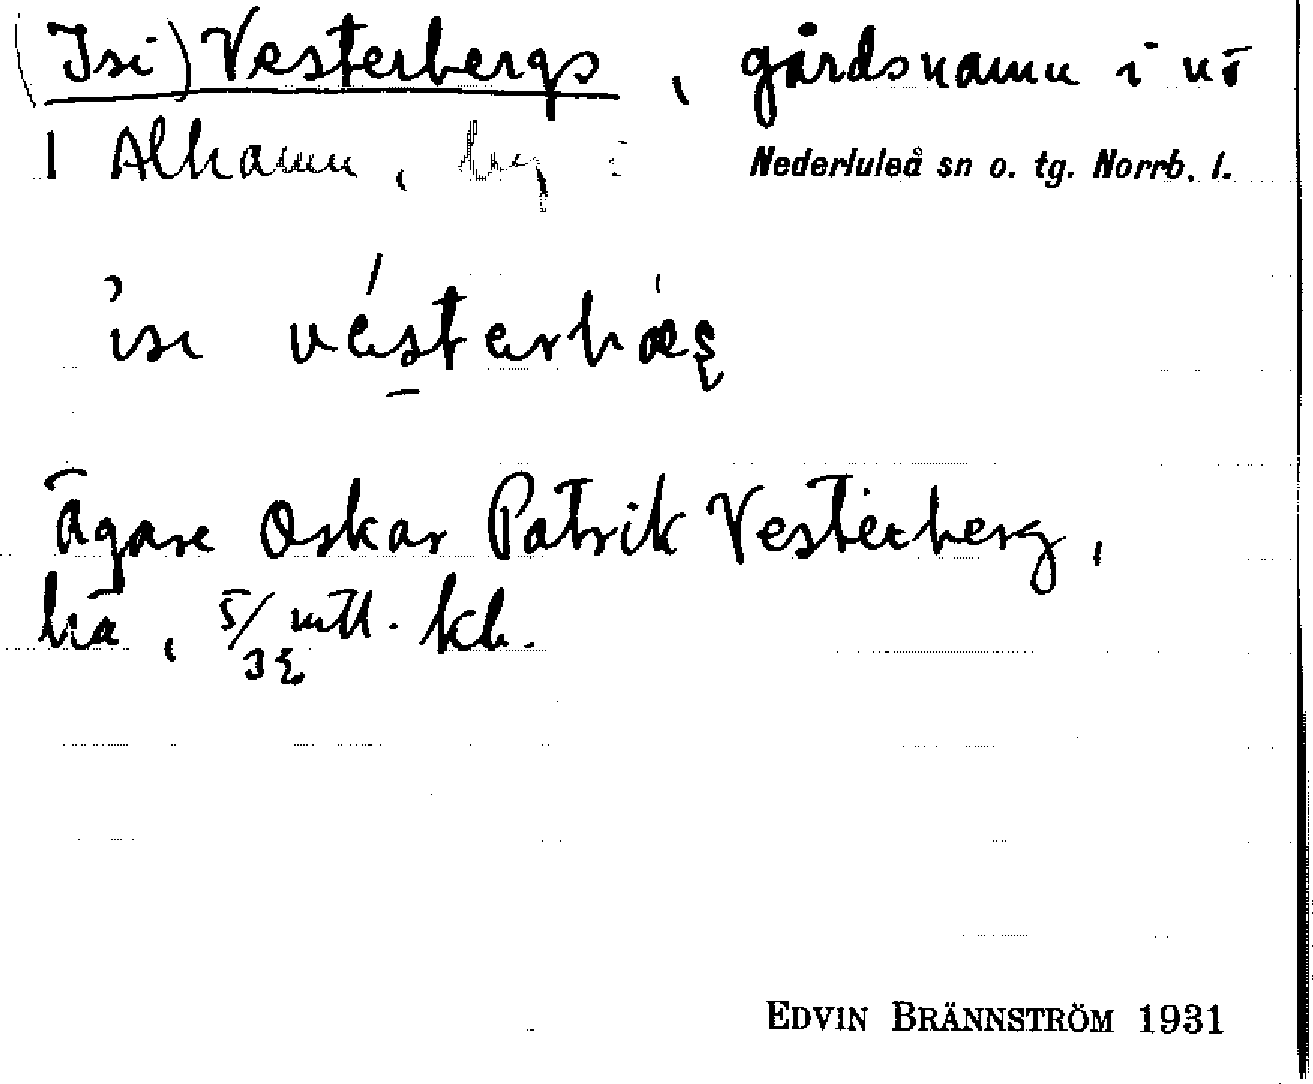 (Isi) Vesterbergs, gårdsnamn i nr
1 Alhamn, by i Nederluleå sn o. tg. Norrb. l.
Ägare Oskar Patrik Vesterberg,
5/32 mtl. kb.
EDVIN BRÄNNSTRÖM 1931